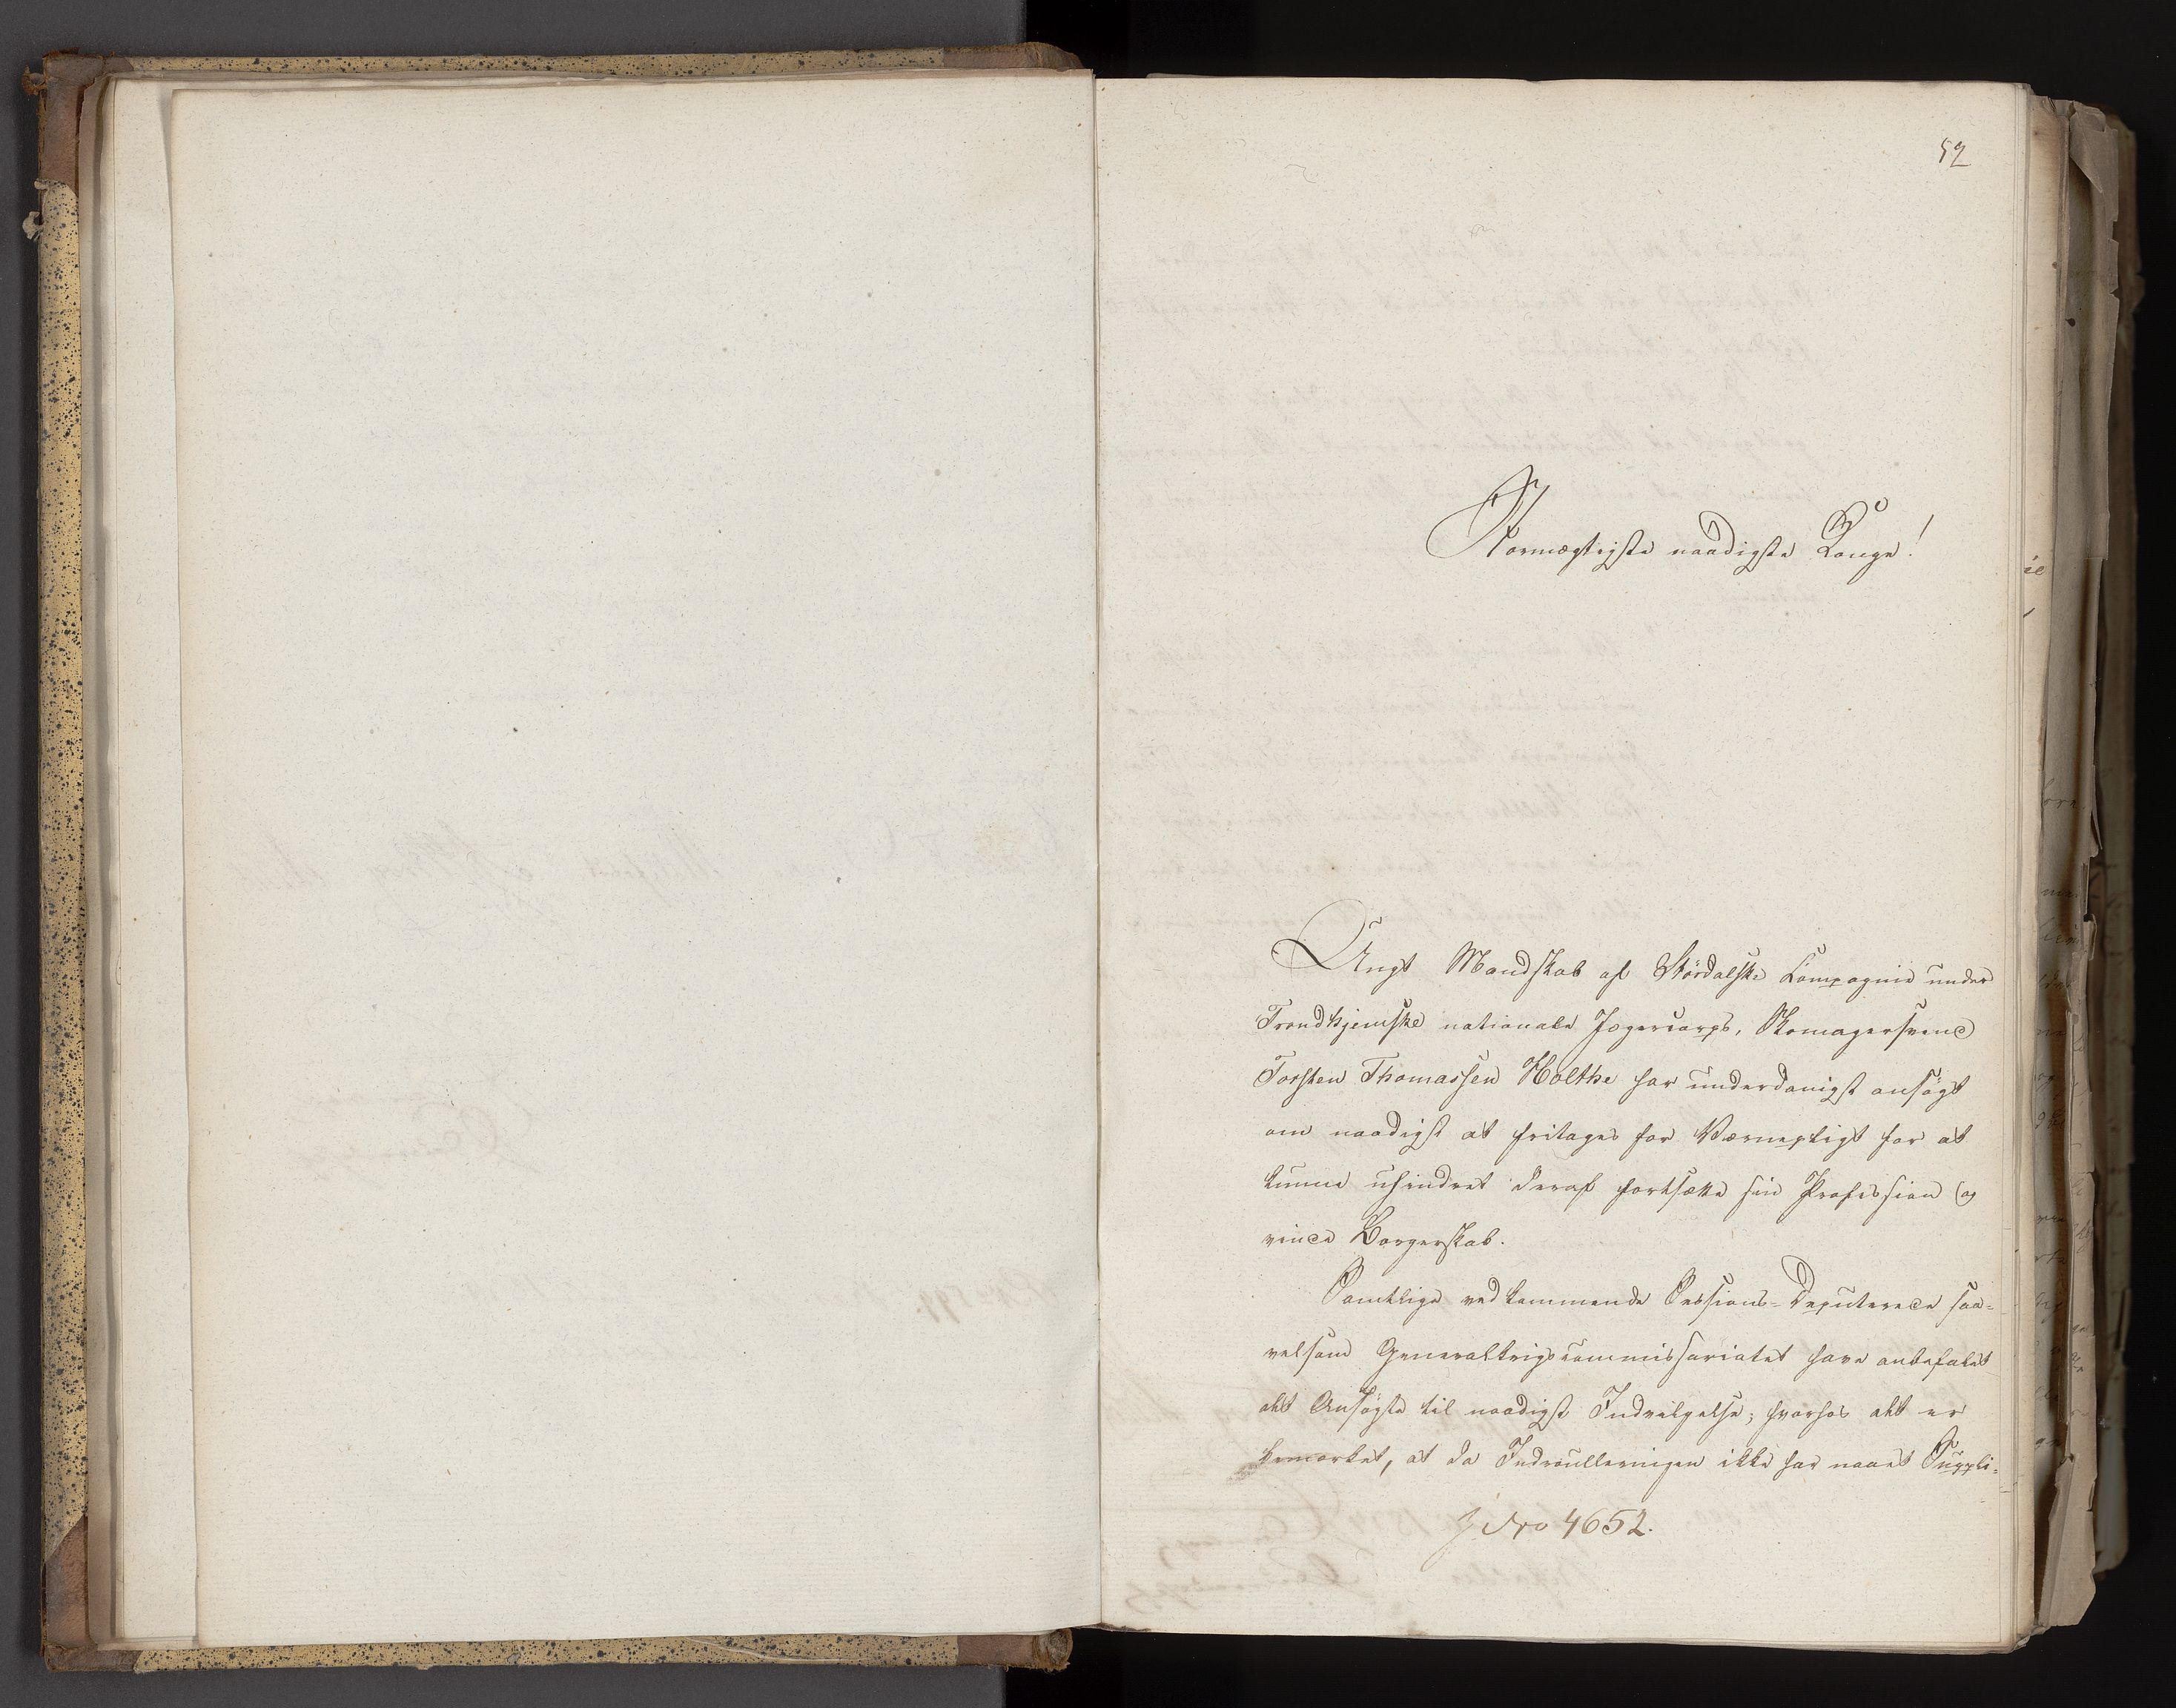 52
Stormægtigste naadigste Konge!
Ungt Mandskab af Størdalske Compagnie under
Trondhjemske nationale Jægercorps, Skomagersvend
Torsten Thomassen Holthe har underdanigst ansøgt
om naadigst at fritages for Værnepligt for at
kunne uhindret deraf fortsætte sin Profession og
vinde Borgerskab.
Samtlige vedkommende Sessions-Deputerede saa-
velsom Generalkrigscommissariatet have anbefalet
det Ansøgte til naadigst Indvilgelse; hvorhos det er
bemærket, at da Indroulleringen ikke har naaet Suppli-
J Nro 4652.